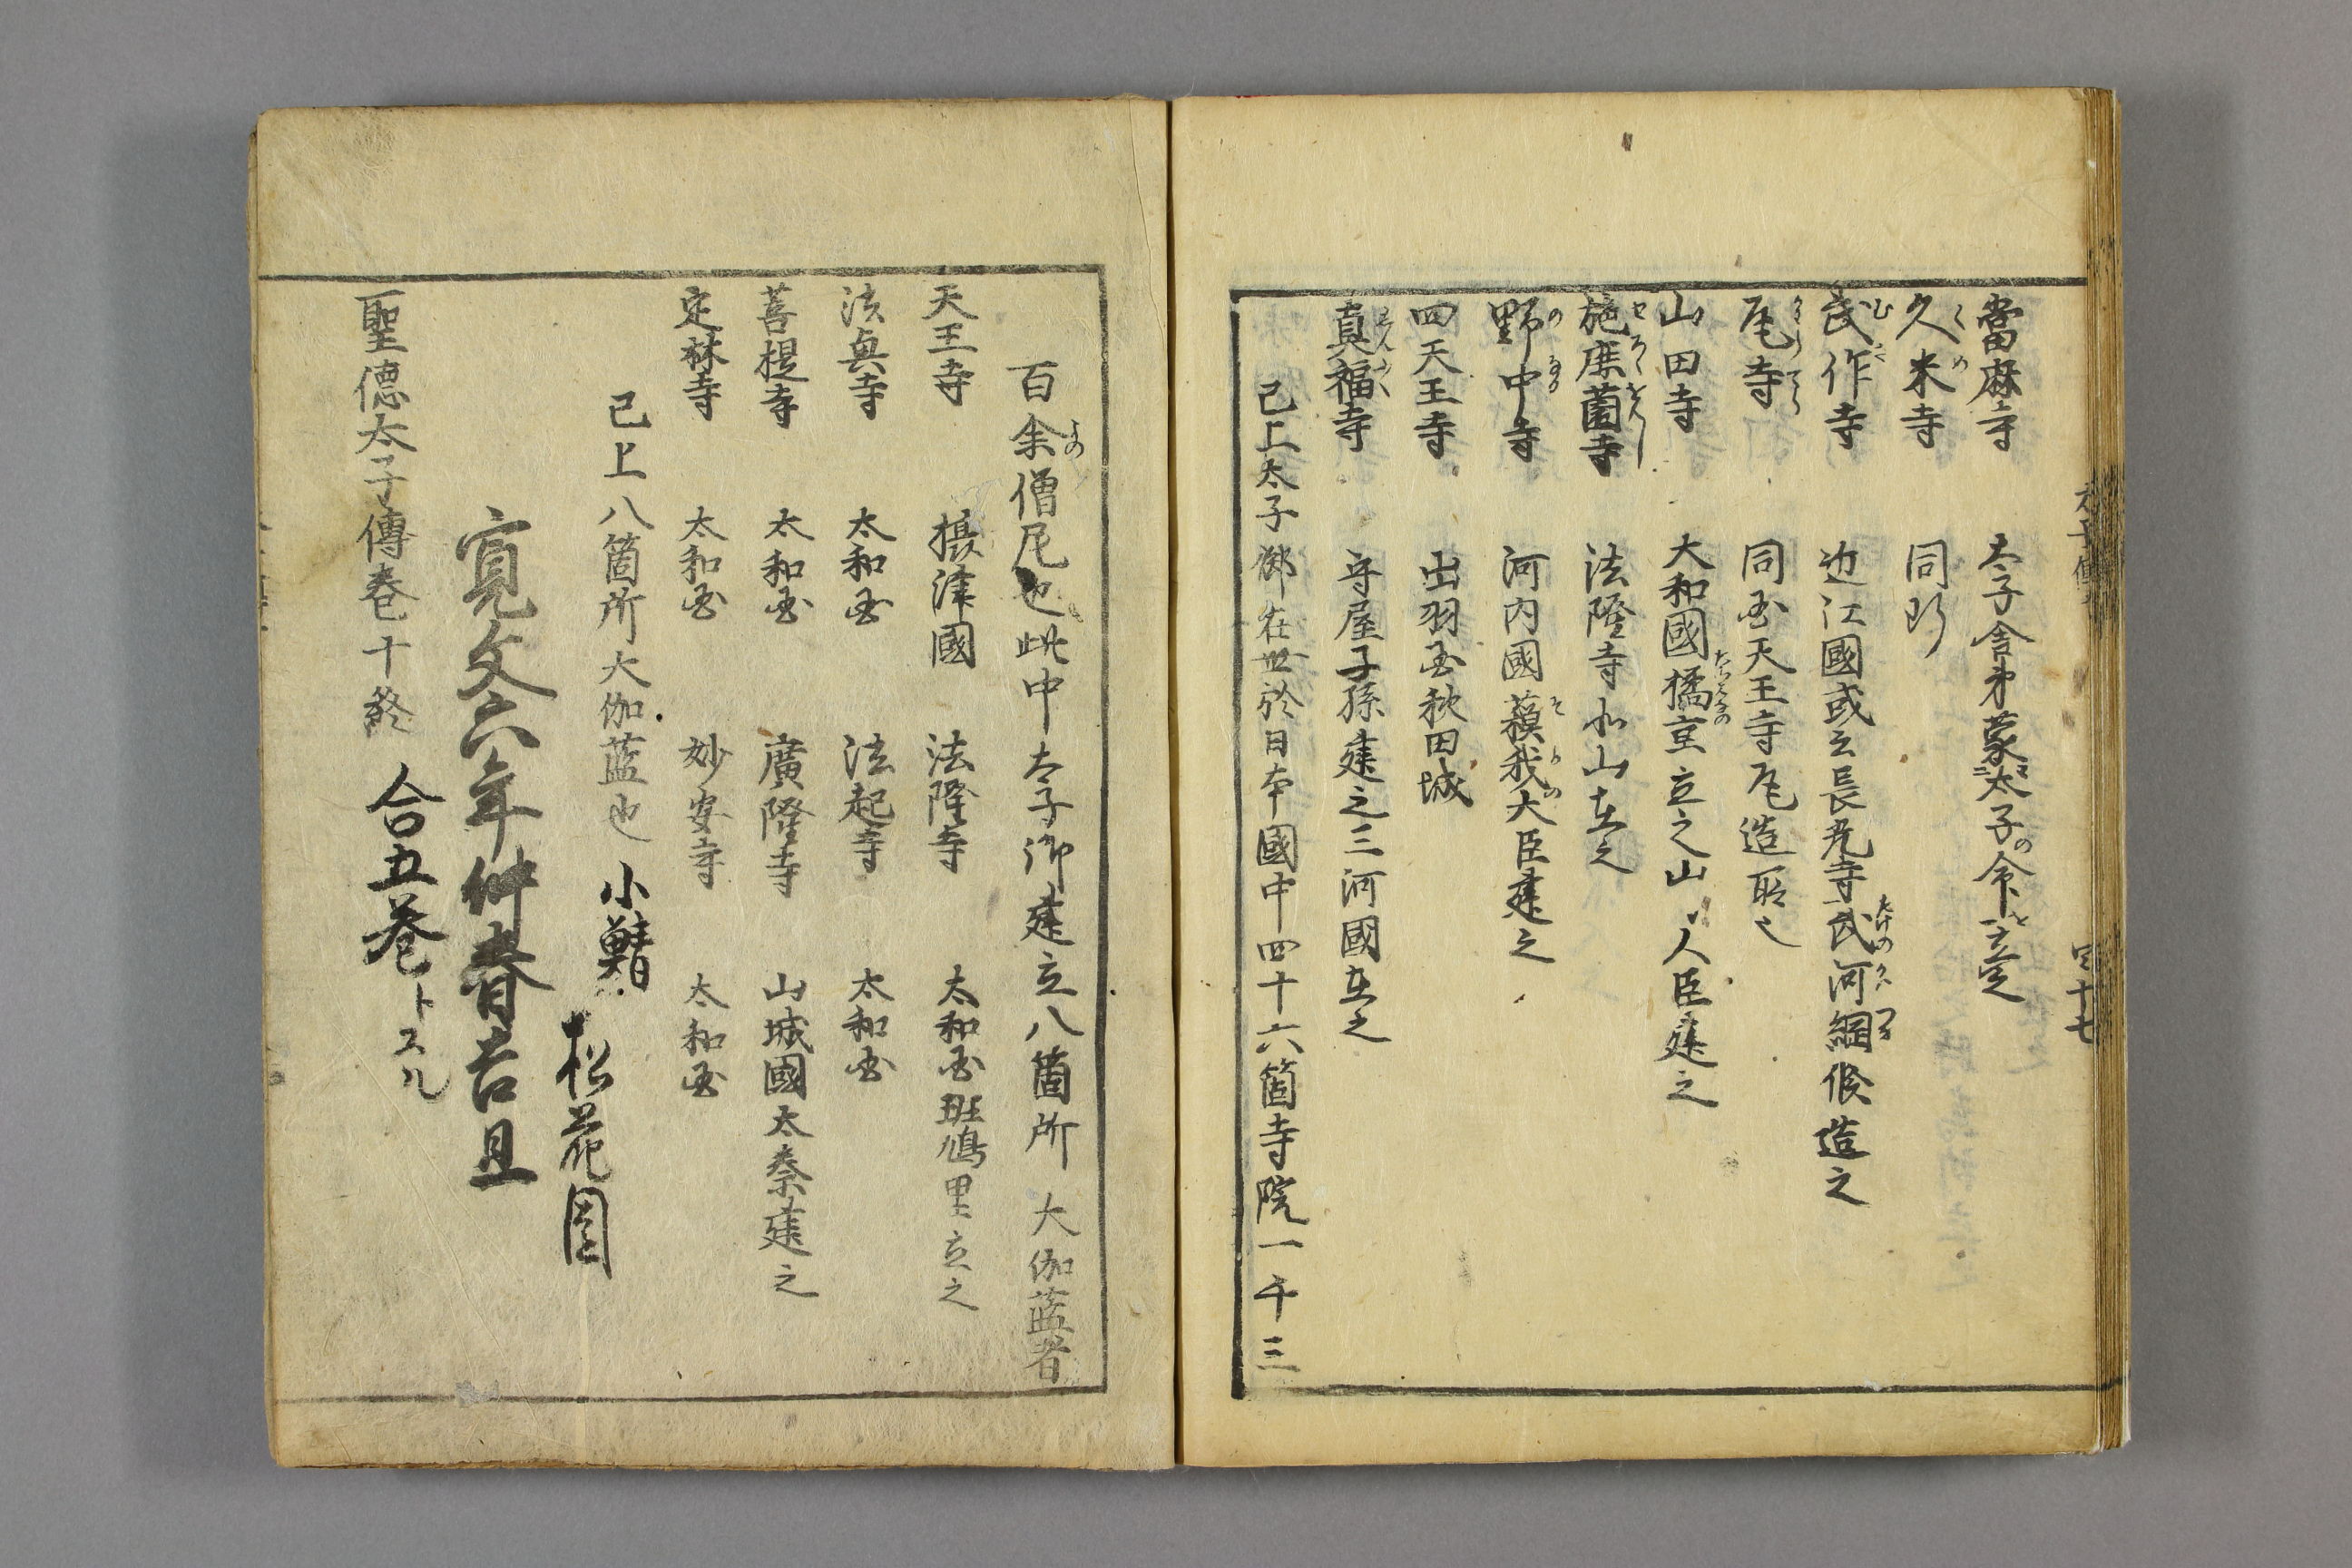 當麻寺 太子舎弟蒙太子の令ヲ立之
久米寺 同所
武作寺 近江國或云長光寺武河綱候造之
尾寺 同国天王寺尾造取之
山田寺 大和國橘京立之山人臣建之
施鹿薗寺 法隆寺北山在之
野中寺 河内國蘓我大臣建之
四天王寺 出羽国秋田城
真福寺 守屋子孫建之三河國在之
已上太子御在世於日本國中四十六箇寺院一千三
四十七
百余僧尼也此中太子御建立八箇所大伽藍者
天王寺 摂津國 法隆寺 太和国斑鳩里立之
法興寺 太和国 法起寺 太和国
菩提寺 太和国 廣隆寺 山城國太秦建之
定林寺 太和国 妙安寺 太和国
已上八箇所大伽藍也
松花園
寛文六年仲春吉旦
聖德太子傳巻十終 合五巻トスル